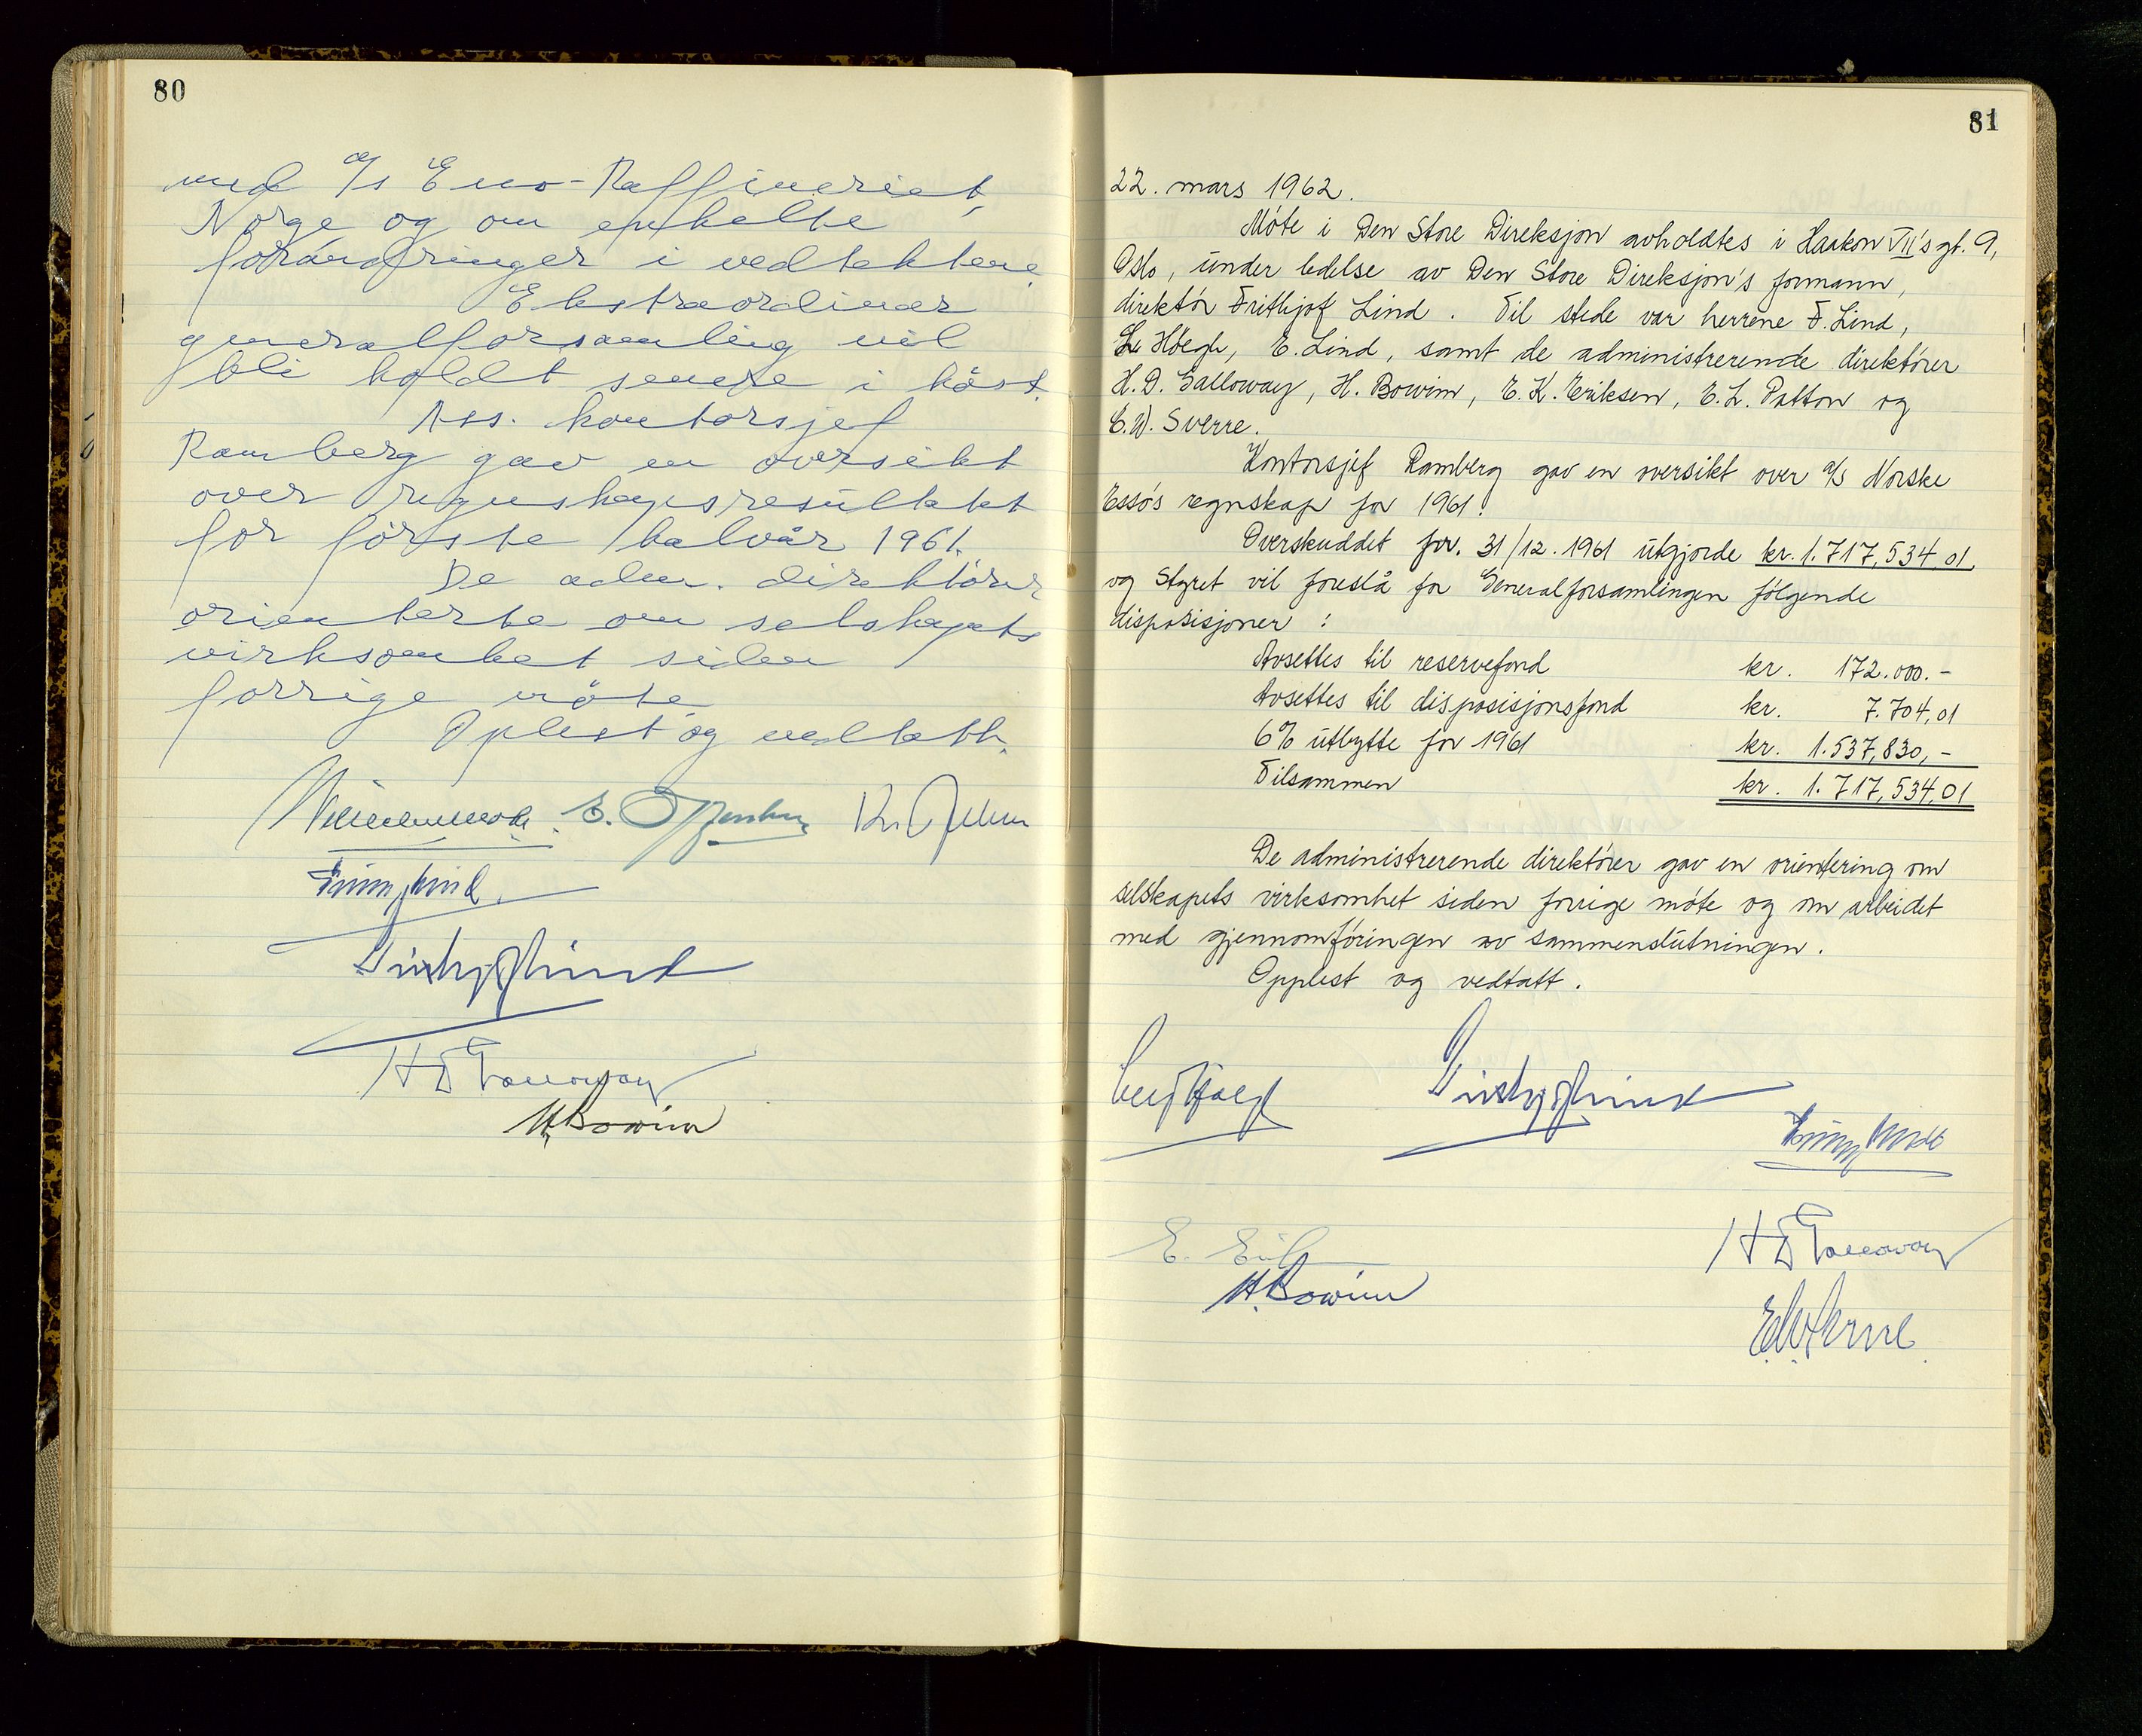 80
med a/s Esso-Raffineriet,
Norge og om enkelte
forandringer i vedtektene.
Ekstraordinær
generalforsamling vil
bli holdt senere i höst.
Ass. kontorsjef
Ramberg gav en oversikt
over regnskapsresultatet
for förste halvår 1961.
De adm. direktörer
orienterte om selskapets
virksomhet siden
forrige möte.
Oplest og vedtatt.
Fridtjof Lind
H D Galloway
H. Bowim
81
22. mars 1962.
Möte i Den Store Direksjon avholdtes i Haakon VII's gt. 9,
Oslo, under ledelse av Den Store Direksjon's formann,
direktör Frithjof Lind. Til stede var herrene F. Lind,
L. Höegh, E. Lind, samt de administrerende direktörer
H. D. Galloway, H. Bowim, E. K. Eriksen, E. L. Patton og
E. W. Sverre.
Kontorsjef Ramberg gav en oversikt over a/s Norske
Esso's regnskap for 1961.
Overskuddet for. 31/12. 1961 utgjorde kr. 1.717,534,01
og Styret vil foreslå for Generalforsamlingen fölgende
disposisjoner :
Avsettes til reservefond kr. 172.000.-
Avsettes til disposisjonsfond kr. 7.704,01
6% utbytte for 1961 kr. 1.537,830,-
Tilsammen kr. 1.717,534,01
De administrerende direktörer gav en orientering om
selskapets virksomhet siden forrige möte og om arbeidet
med gjennomföringen av sammenslutningen.
Opplest og vedtatt.
Leif Höegh Fridtjof Lind
H D Galloway
H. Bowim
E W Sverre